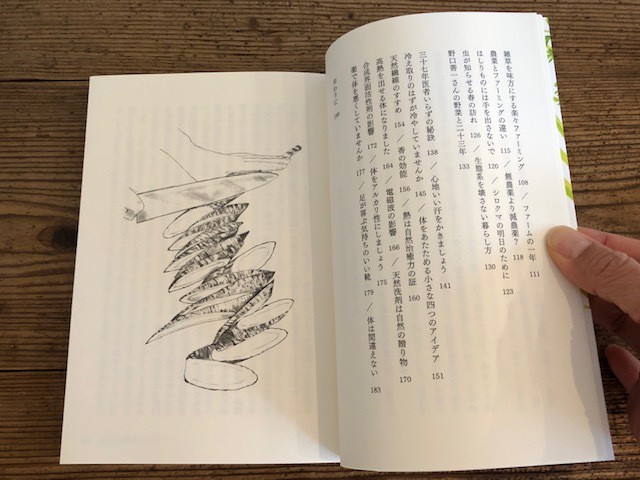 雑草を味方にする楽々ファーミング 108 / ファームの一年 111
農薬とファーミングの違い 115 / 無農薬より減農薬？ 118
はしりものには手を出さないで 120 / シロクマの明日のために 123
虫が知らせる春の訪れ 126 / 生態系を壊さない暮らし方 130
野口善一さんの野菜と二十三年 133
三十七年医者いらずの秘訣 138 / 心地いい汗をかきましょう 141
冷え取りのはずが冷やしていませんか 145 / 体をあたためる小さな四つのアイデア 151
天然繊維のすすめ 154 / 香の効能 156 / 熱は自然治癒力の証 160
高熱を出せる体になりました 164 / 電磁波の影響 166 / 天然洗剤は自然の贈り物 170
合成界面活性剤の影響 172 / 体をアルカリ性にしましょう 175
薬で体を悪くしていませんか 177 / 足が喜ぶ気持ちのいい靴 179 / 体は間違えない 183
おわりに